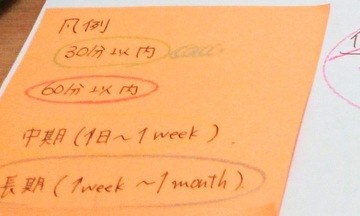 凡例
30分以内
60分以内
中期(1日〜1week)
長期(1week〜1month)